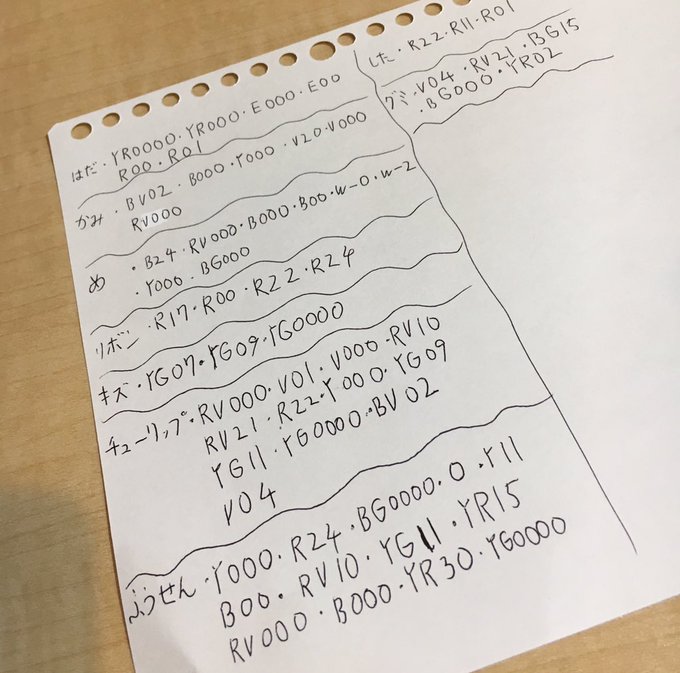 はだ・YR0000・YR000・E000・E00
R00・R01
かみ・BV02・B000・Y000・V20・V000
RV000
め・B24・RV000・B000・B00・W-0・W-2
・Y000・BG000
リボン・R17・R00・R22・R24
キズ・YG07・YG09・YG0000
チューリップ・RV000・V01・V000・RV10
RV21・R22・Y000・YG09
YG11・YG0000・BV02
V04
ふうせん・Y000・R24・BG0000・0・Y11
B00・RV10・YG11・YR15
RV000・B000・YR30・YG0000
した・R22・R11・R01
グミ・V04・RV21・BG15
・BG000・YR02